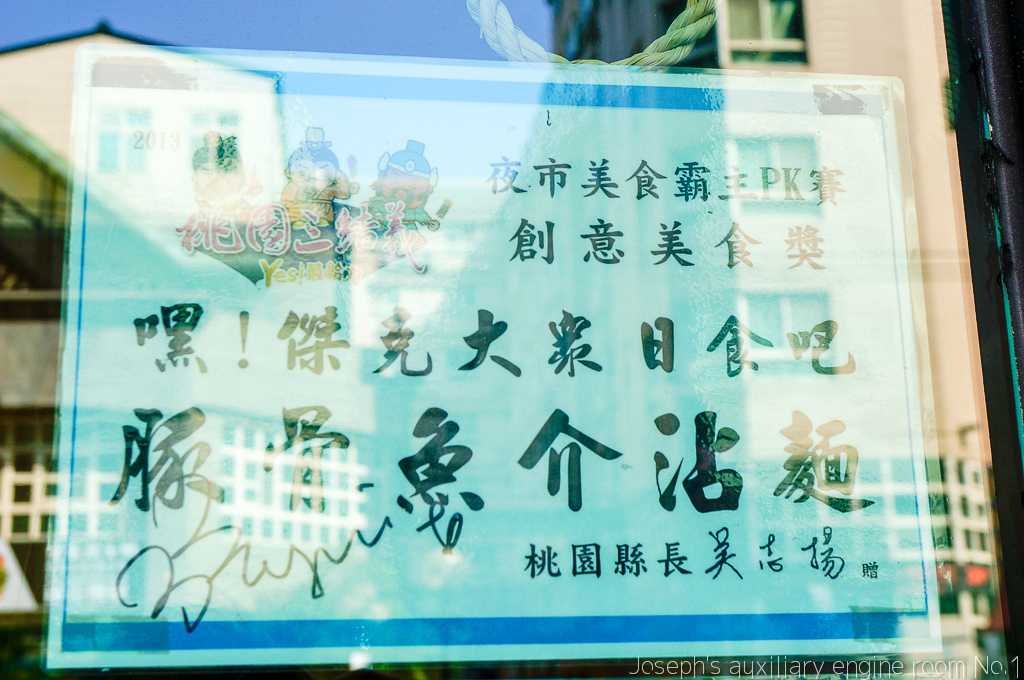 2013
夜市美食霸主PK賽
桃園三結義
創意美食獎
Yes!
嘿!傑克大眾日食吧
豚骨魚介沾麵
桃園縣長吳志揚 贈
Joseph's auxiliary engine room No.1